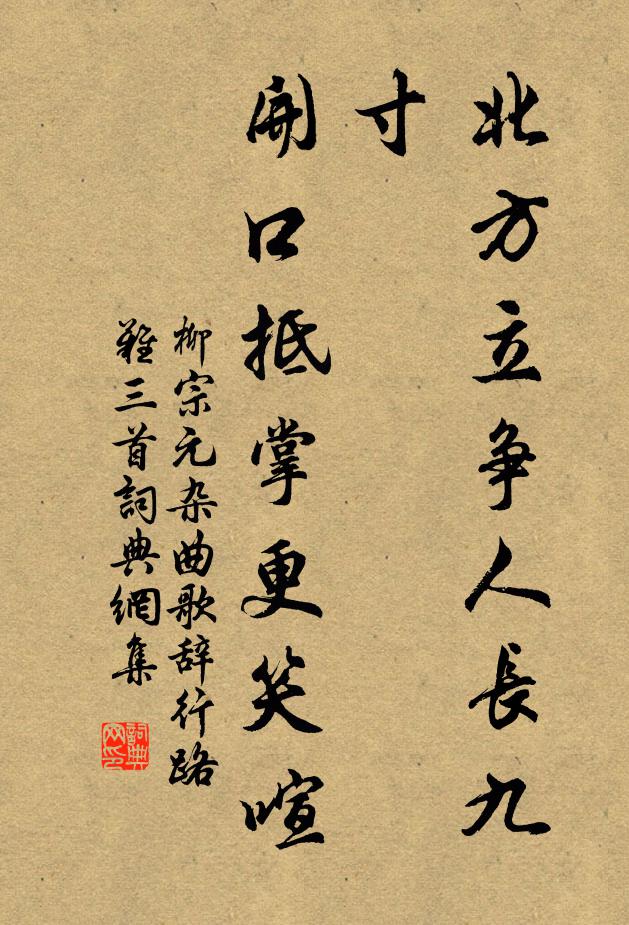 北方立争人長九
寸
開口抵掌更笑喧
柳宗元杂曲歌辞行路
難三首詞典網集
詞典
网印